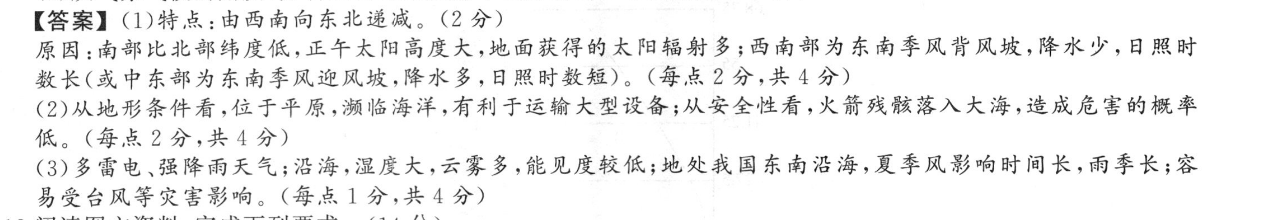 【答案】(1)特点:由西南向东北递减。(2 分)
原因:南部比北部纬度低,正午太阳高度大,地面获得的太阳辐射多;西南部为东南季风背风坡,降水少,日照时
数长(或中东部为东南季风迎风坡,降水多,日照时数短)。(每点 2 分,共 4 分)
(2)从地形条件看,位于平原,濒临海洋,有利于运输大型设备;从安全性看,火箭残骸落入大海,造成危害的概率
低。(每点 2 分,共 4 分)
(3)多雷电、强降雨天气;沿海,湿度大,云雾多,能见度较低;地处我国东南沿海,夏季风影响时间长,雨季长;容
易受台风等灾害影响。(每点 1 分,共 4 分)